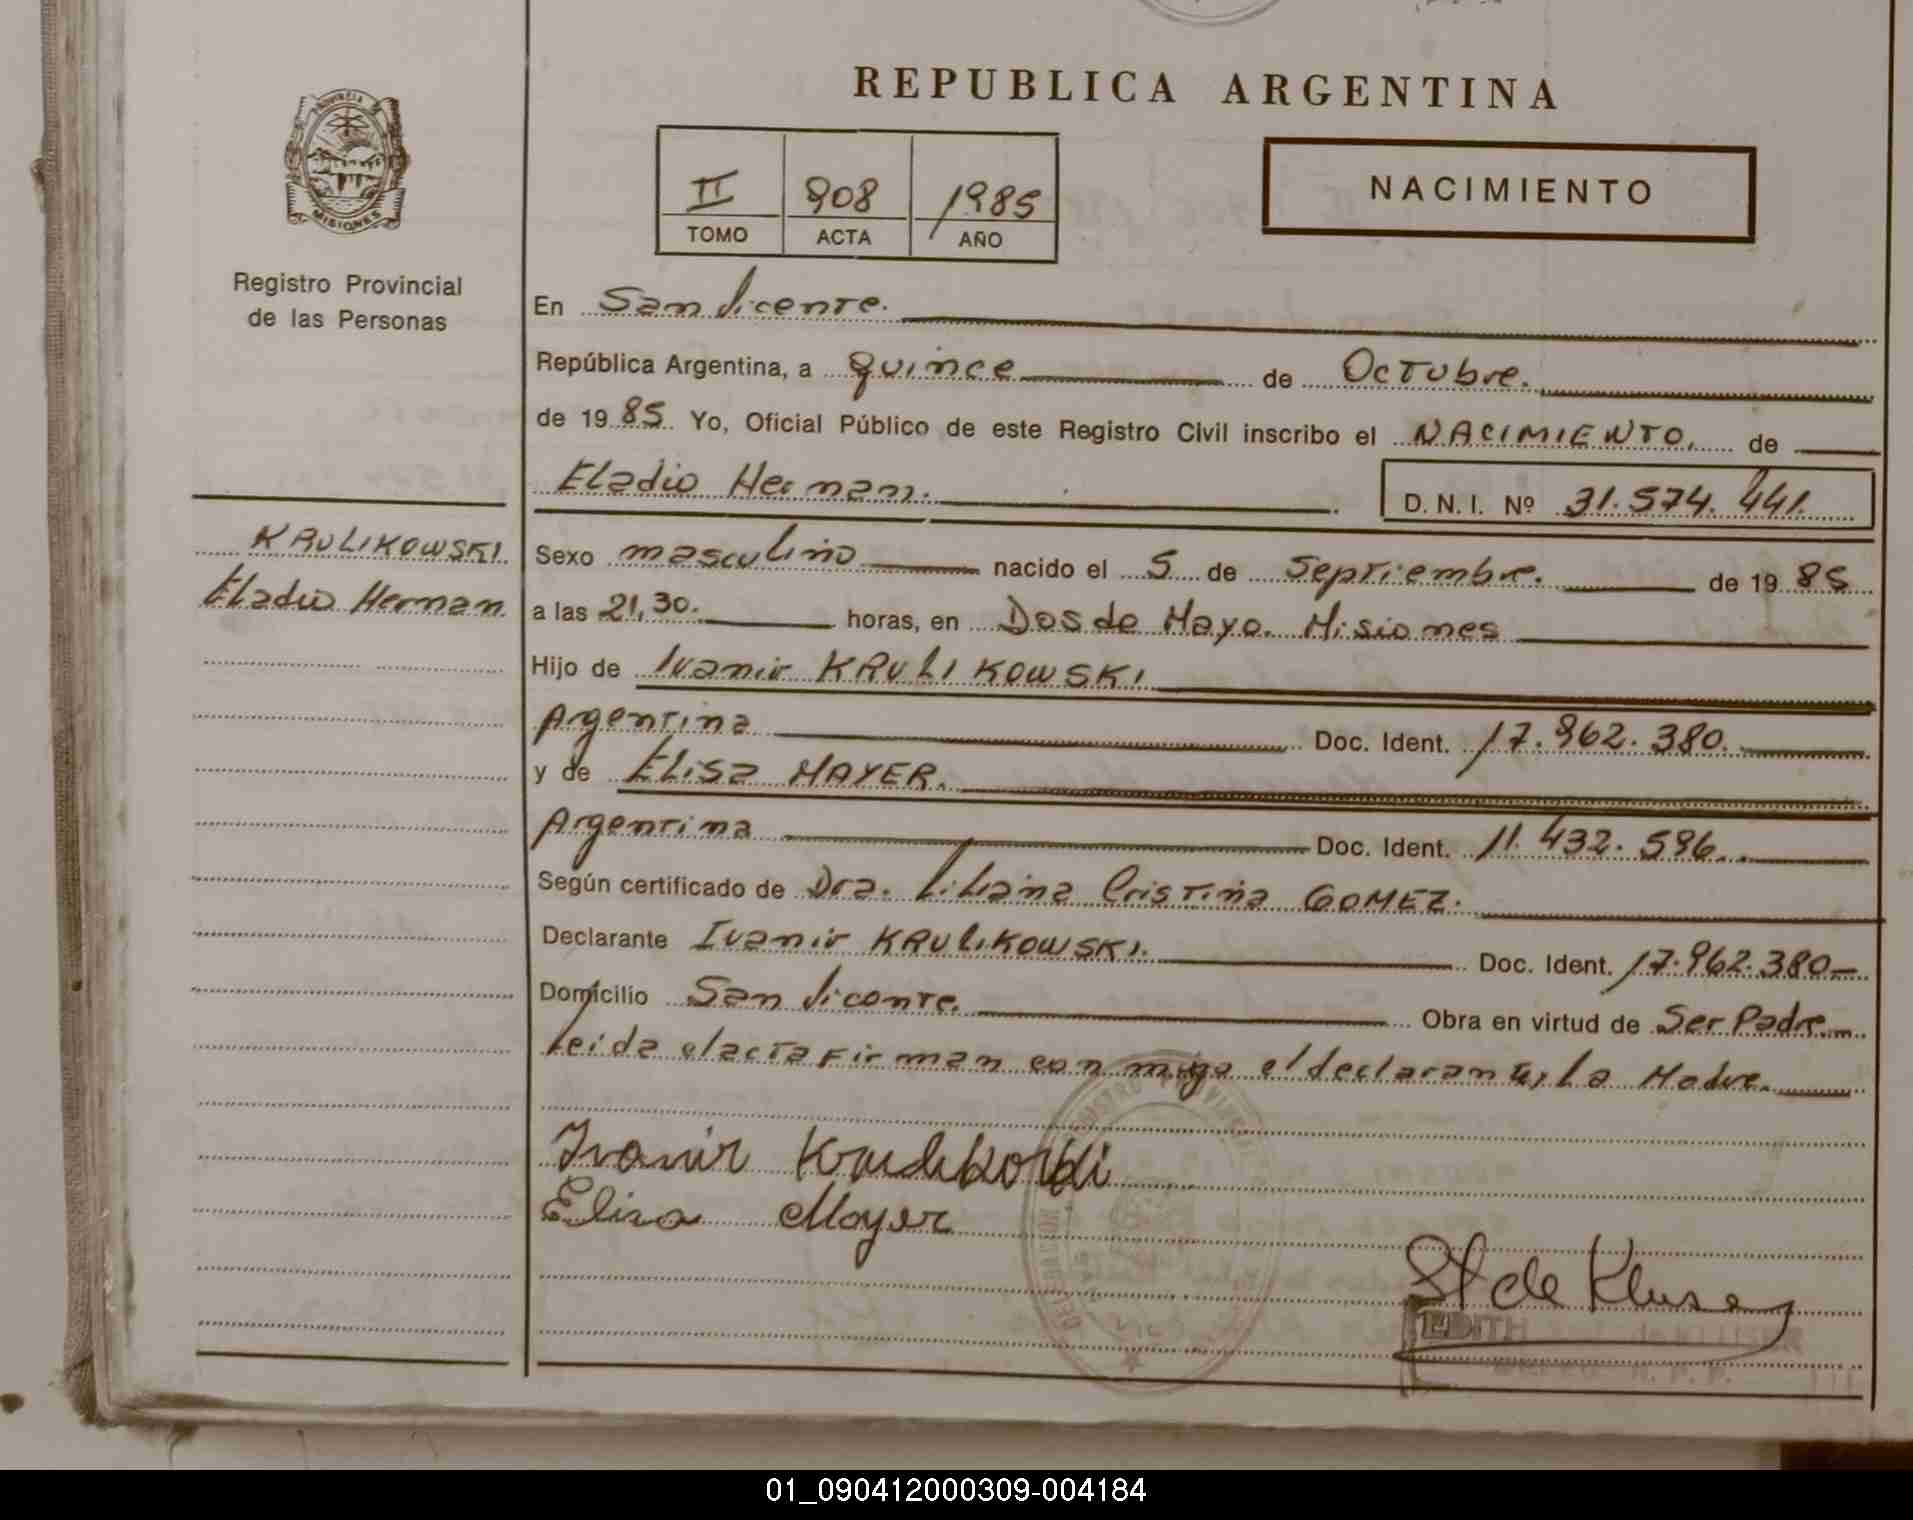 REPUBLICA ARGENTINA
PROVINCIA DE
MISIONES
Registro Provincial
de las Personas
II 908 1985
TOMO ACTA AÑO
NACIMIENTO
En San Vicente.
República Argentina, a quince de Octubre.
de 1985 Yo, Oficial Público de este Registro Civil inscribo el NACIMIENTO. de
Eladio Hernan. D. N. I. Nº 31.574.441.
KRULIKOWSKI
Eladio Hernan.
Sexo masculino nacido el 5 de Septiembre. de 1985
a las 21,30. horas, en Dos de Mayo. Misiones
Hijo de Ivanir KRULIKOWSKI
Argentina Doc. Ident. 17.962.380.
y de Elisa MAYER.
Argentina Doc. Ident. 11.432.596.
Según certificado de Dra. Liliana Cristina GOMEZ.
Declarante Ivanir KRULIKOWSKI. Doc. Ident. 17.962.380
Domicilio San Vicente. Obra en virtud de Ser Padre
Leida el acta firman con migo el declarante y La Madre.
Ivanir Krulikoski
Elisa Mayer
de Kluse
EDITH
01_090412000309-004184